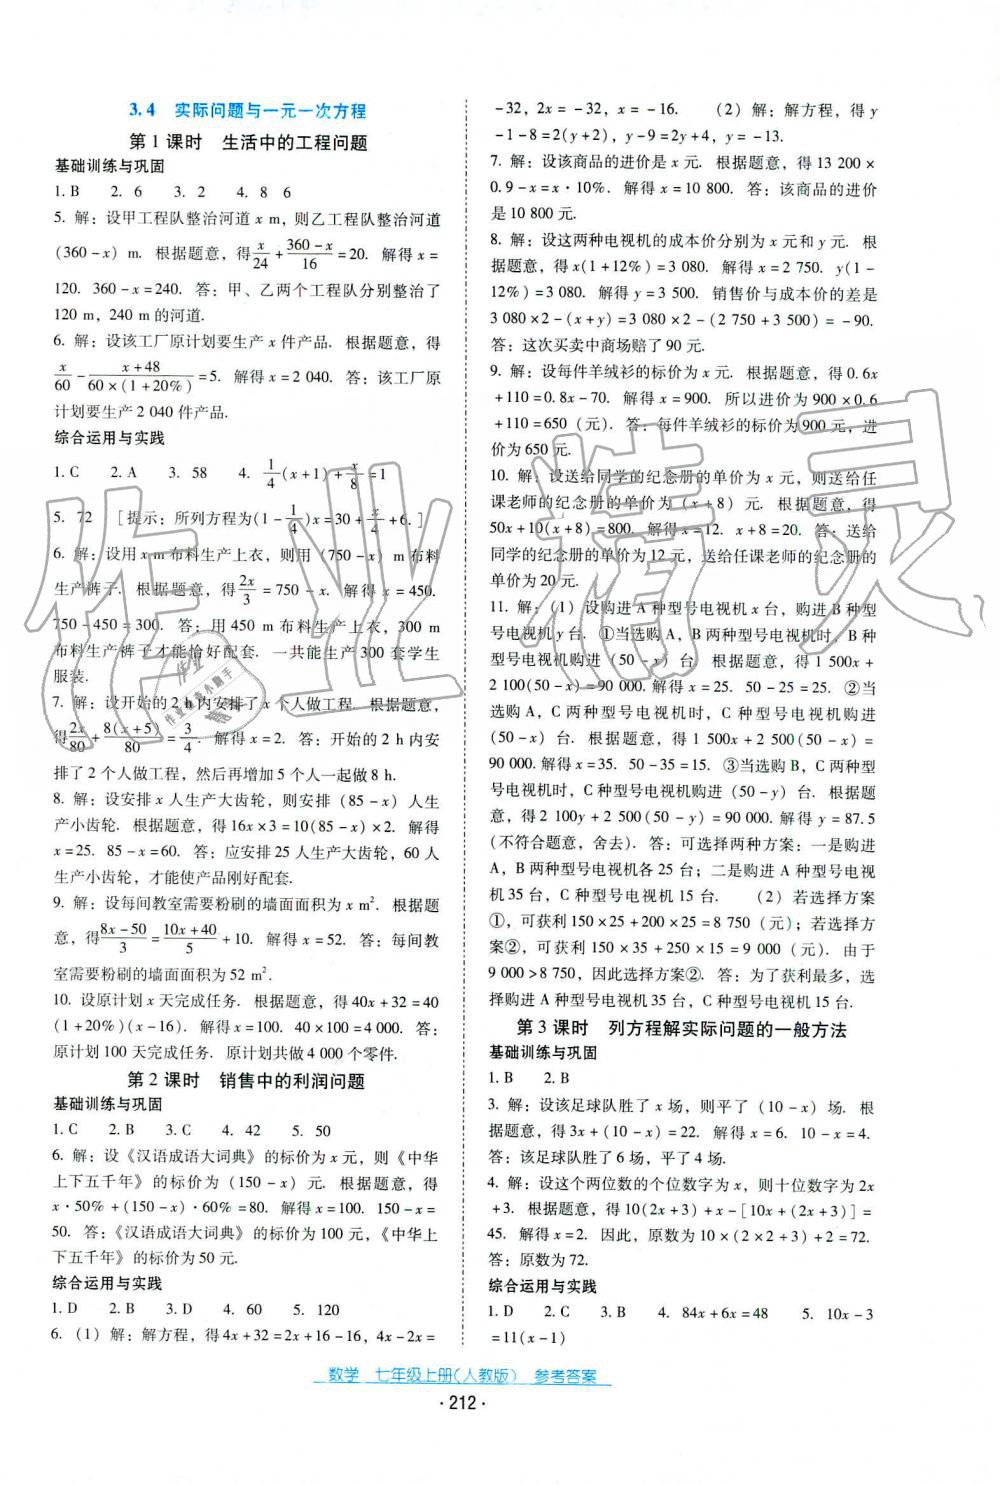 3.4 实际问题与一元一次方程
第1课时 生活中的工程问题
基础训练与巩固
1. B 2. 6 3. 2 4. 8 6
5. 解：设甲工程队整治河道 x m，则乙工程队整治河道
(360－x) m. 根据题意，得x/24＋(360－x)/16＝20. 解得 x＝
120. 360－x＝240. 答：甲、乙两个工程队分别整治了
120 m，240 m 的河道.
6. 解：设该工厂原计划要生产 x 件产品. 根据题意，得
x/60－(x＋48)/(60×(1＋20%))＝5. 解得 x＝2 040. 答：该工厂原
计划要生产 2 040 件产品.
综合运用与实践
1. C 2. A 3. 58 4. 1/4(x＋1)＋x/8＝1
5. 72 [提示：所列方程为(1－1/4)x＝30＋x/4＋6.]
6. 解：设用 x m 布料生产上衣，则用 (750－x) m 布料
生产裤子. 根据题意，得2x/3＝750－x. 解得 x＝450.
750－450＝300. 答：用 450 m 布料生产上衣，300 m
布料生产裤子才能恰好配套. 一共能生产 300 套学生
服装.
7. 解：设开始的 2 h 内安排了 x 个人做工程. 根据题意，
得2x/80＋8(x＋5)/80＝3/4. 解得 x＝2. 答：开始的 2 h 内安
排了 2 个人做工程，然后再增加 5 个人一起做 8 h.
8. 解：设安排 x 人生产大齿轮，则安排 (85－x) 人生
产小齿轮. 根据题意，得 16x×3＝10(85－x)×2. 解得
x＝25. 85－x＝60. 答：应安排 25 人生产大齿轮，60 人
生产小齿轮，才能使产品刚好配套.
9. 解：设每间教室需要粉刷的墙面面积为 x m². 根据题
意，得(8x－50)/3＝(10x＋40)/5＋10. 解得 x＝52. 答：每间教
室需要粉刷的墙面面积为 52 m².
10. 设原计划 x 天完成任务. 根据题意，得 40x＋32＝40
(1＋20%)(x－16). 解得 x＝100. 40×100＝4 000. 答：
原计划 100 天完成任务. 原计划共做 4 000 个零件.
第2课时 销售中的利润问题
基础训练与巩固
1. C 2. B 3. C 4. 42 5. 50
6. 解：设《汉语成语大词典》的标价为 x 元，则《中华
上下五千年》的标价为 (150－x) 元. 根据题意，得
x·50%＋(150－x)·60%＝80. 解得 x＝100. 150－x＝
50. 答：《汉语成语大词典》的标价为 100 元，《中华上
下五千年》的标价为 50 元.
综合运用与实践
1. D 2. B 3. D 4. 60 5. 120
6. (1) 解：解方程，得 4x＋32＝2x＋16－16，4x－2x＝
－32，2x＝－32，x＝－16. (2) 解：解方程，得 y
－1－8＝2(y＋2)，y－9＝2y＋4，y＝－13.
7. 解：设该商品的进价是 x 元. 根据题意，得 13 200×
0.9－x＝x·10%. 解得 x＝10 800. 答：该商品的进价
是 10 800 元.
8. 解：设这两种电视机的成本价分别为 x 元和 y 元. 根
据题意，得 x(1＋12%)＝3 080. 解得 x＝2 750. y(1－
12%)＝3 080. 解得 y＝3 500. 销售价与成本价的差是
3 080×2－(x＋y)＝3 080×2－(2 750＋3 500)＝－90.
答：这次买卖中商场赔了 90 元.
9. 解：设每件羊绒衫的标价为 x 元. 根据题意，得 0.6x
＋110＝0.8x－70. 解得 x＝900. 所以进价为 900×0.6
＋110＝650 (元). 答：每件羊绒衫的标价为 900 元，进
价为 650 元.
10. 解：设送给同学的纪念册的单价为 x 元，则送给任
课老师的纪念册的单价为 (x＋8) 元. 根据题意，得
50x＋10(x＋8)＝800. 解得 x＝12. x＋8＝20. 答：送给
同学的纪念册的单价为 12 元，送给任课老师的纪念册的
单价为 20 元.
11. 解：(1) 设购进 A 种型号电视机 x 台，购进 B 种型
号电视机 y 台. ①当选购 A，B 两种型号电视机时，B 种
型号电视机购进 (50－x) 台. 根据题意，得 1 500x＋
2 100(50－x)＝90 000. 解得 x＝25. 50－25＝25. ②当
选购 A，C 两种型号电视机时，C 种型号电视机购进
(50－x) 台. 根据题意，得 1 500x＋2 500(50－x)＝
90 000. 解得 x＝35. 50－35＝15. ③当选购 B，C 两种型
号电视机时，C 种型号电视机购进 (50－y) 台. 根据题
意，得 2 100y＋2 500(50－y)＝90 000. 解得 y＝87.5
(不符合题意，舍去). 答：可选择两种方案：一是购进
A，B 两种型号电视机各 25 台；二是购进 A 种型号电视
机 35 台，C 种型号电视机 15 台. (2) 若选择方案
①，可获利 150×25＋200×25＝8 750 (元)；若选择方
案②，可获利 150×35＋250×15＝9 000 (元). 由于
9 000＞8 750，因此选择方案②. 答：为了获利最多，选
择购进 A 种型号电视机 35 台，C 种型号电视机 15 台.
第3课时 列方程解实际问题的一般方法
基础训练与巩固
1. B 2. B
3. 解：设该足球队胜了 x 场，则平了 (10－x) 场. 根
据题意，得 3x＋(10－x)＝22. 解得 x＝6. 10－x＝4.
答：该足球队胜了 6 场，平了 4 场.
4. 解：设这个两位数的个位数字为 x，则十位数字为 2x
＋3. 根据题意，得 10(2x＋3)＋x－[10x＋(2x＋3)]＝
45. 解得 x＝2. 因此，原数为 10×(2×2＋3)＋2＝72.
答：原数为 72.
综合运用与实践
1. D 2. C 3. B 4. 84x＋6x＝48 5. 10x－3
＝11(x－1)
数学 七年级上册(人教版) 参考答案
·212·
作业精灵